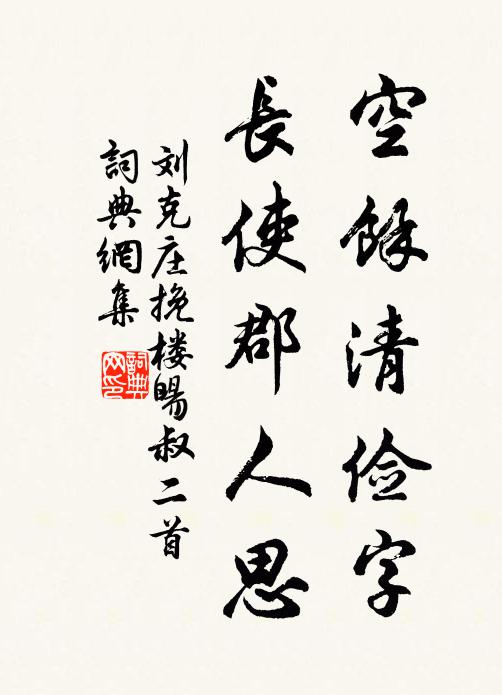 空餘清儉字
長使郡人思
刘克庄挽楼暘叔二首
詞典網集
詞典网印